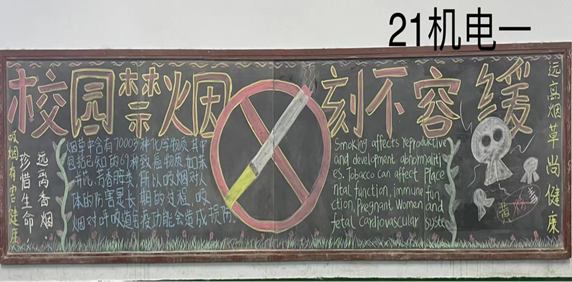 21机电一
校园禁烟 刻不容缓
吸烟有害健康
珍惜生命
远离香烟
烟草中含有7000多种化学物质,其中
包括已知的69种致癌物质,如苯
并芘、芳香胺类,所以吸烟对人
体的伤害是长期的过程,吸
烟对呼吸道免疫功能会造成损伤
Smoking affects reproductive
and development abnormaliti
es. Tobacco can affect place
ntal function, immune fun
ction, Pregnant Women and
fetal cardiovascular system
远离烟草尚健康